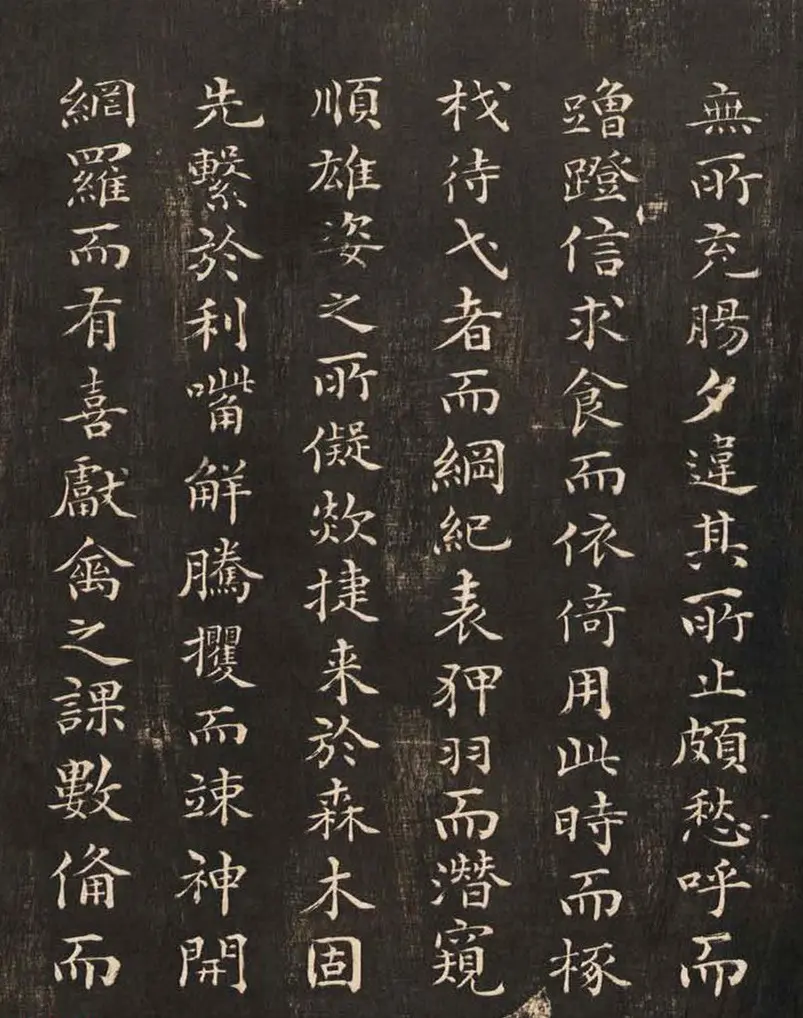 無所充腸夕違其所止頗愁呼而
蹭蹬信求食而依倚用此時而椓
杙待弋者而綱紀表狎羽而潛窺
順雄姿之所儗欻捷来於森木固
先繫於利嘴解騰攫而竦神開
網羅而有喜獻禽之課數俻而